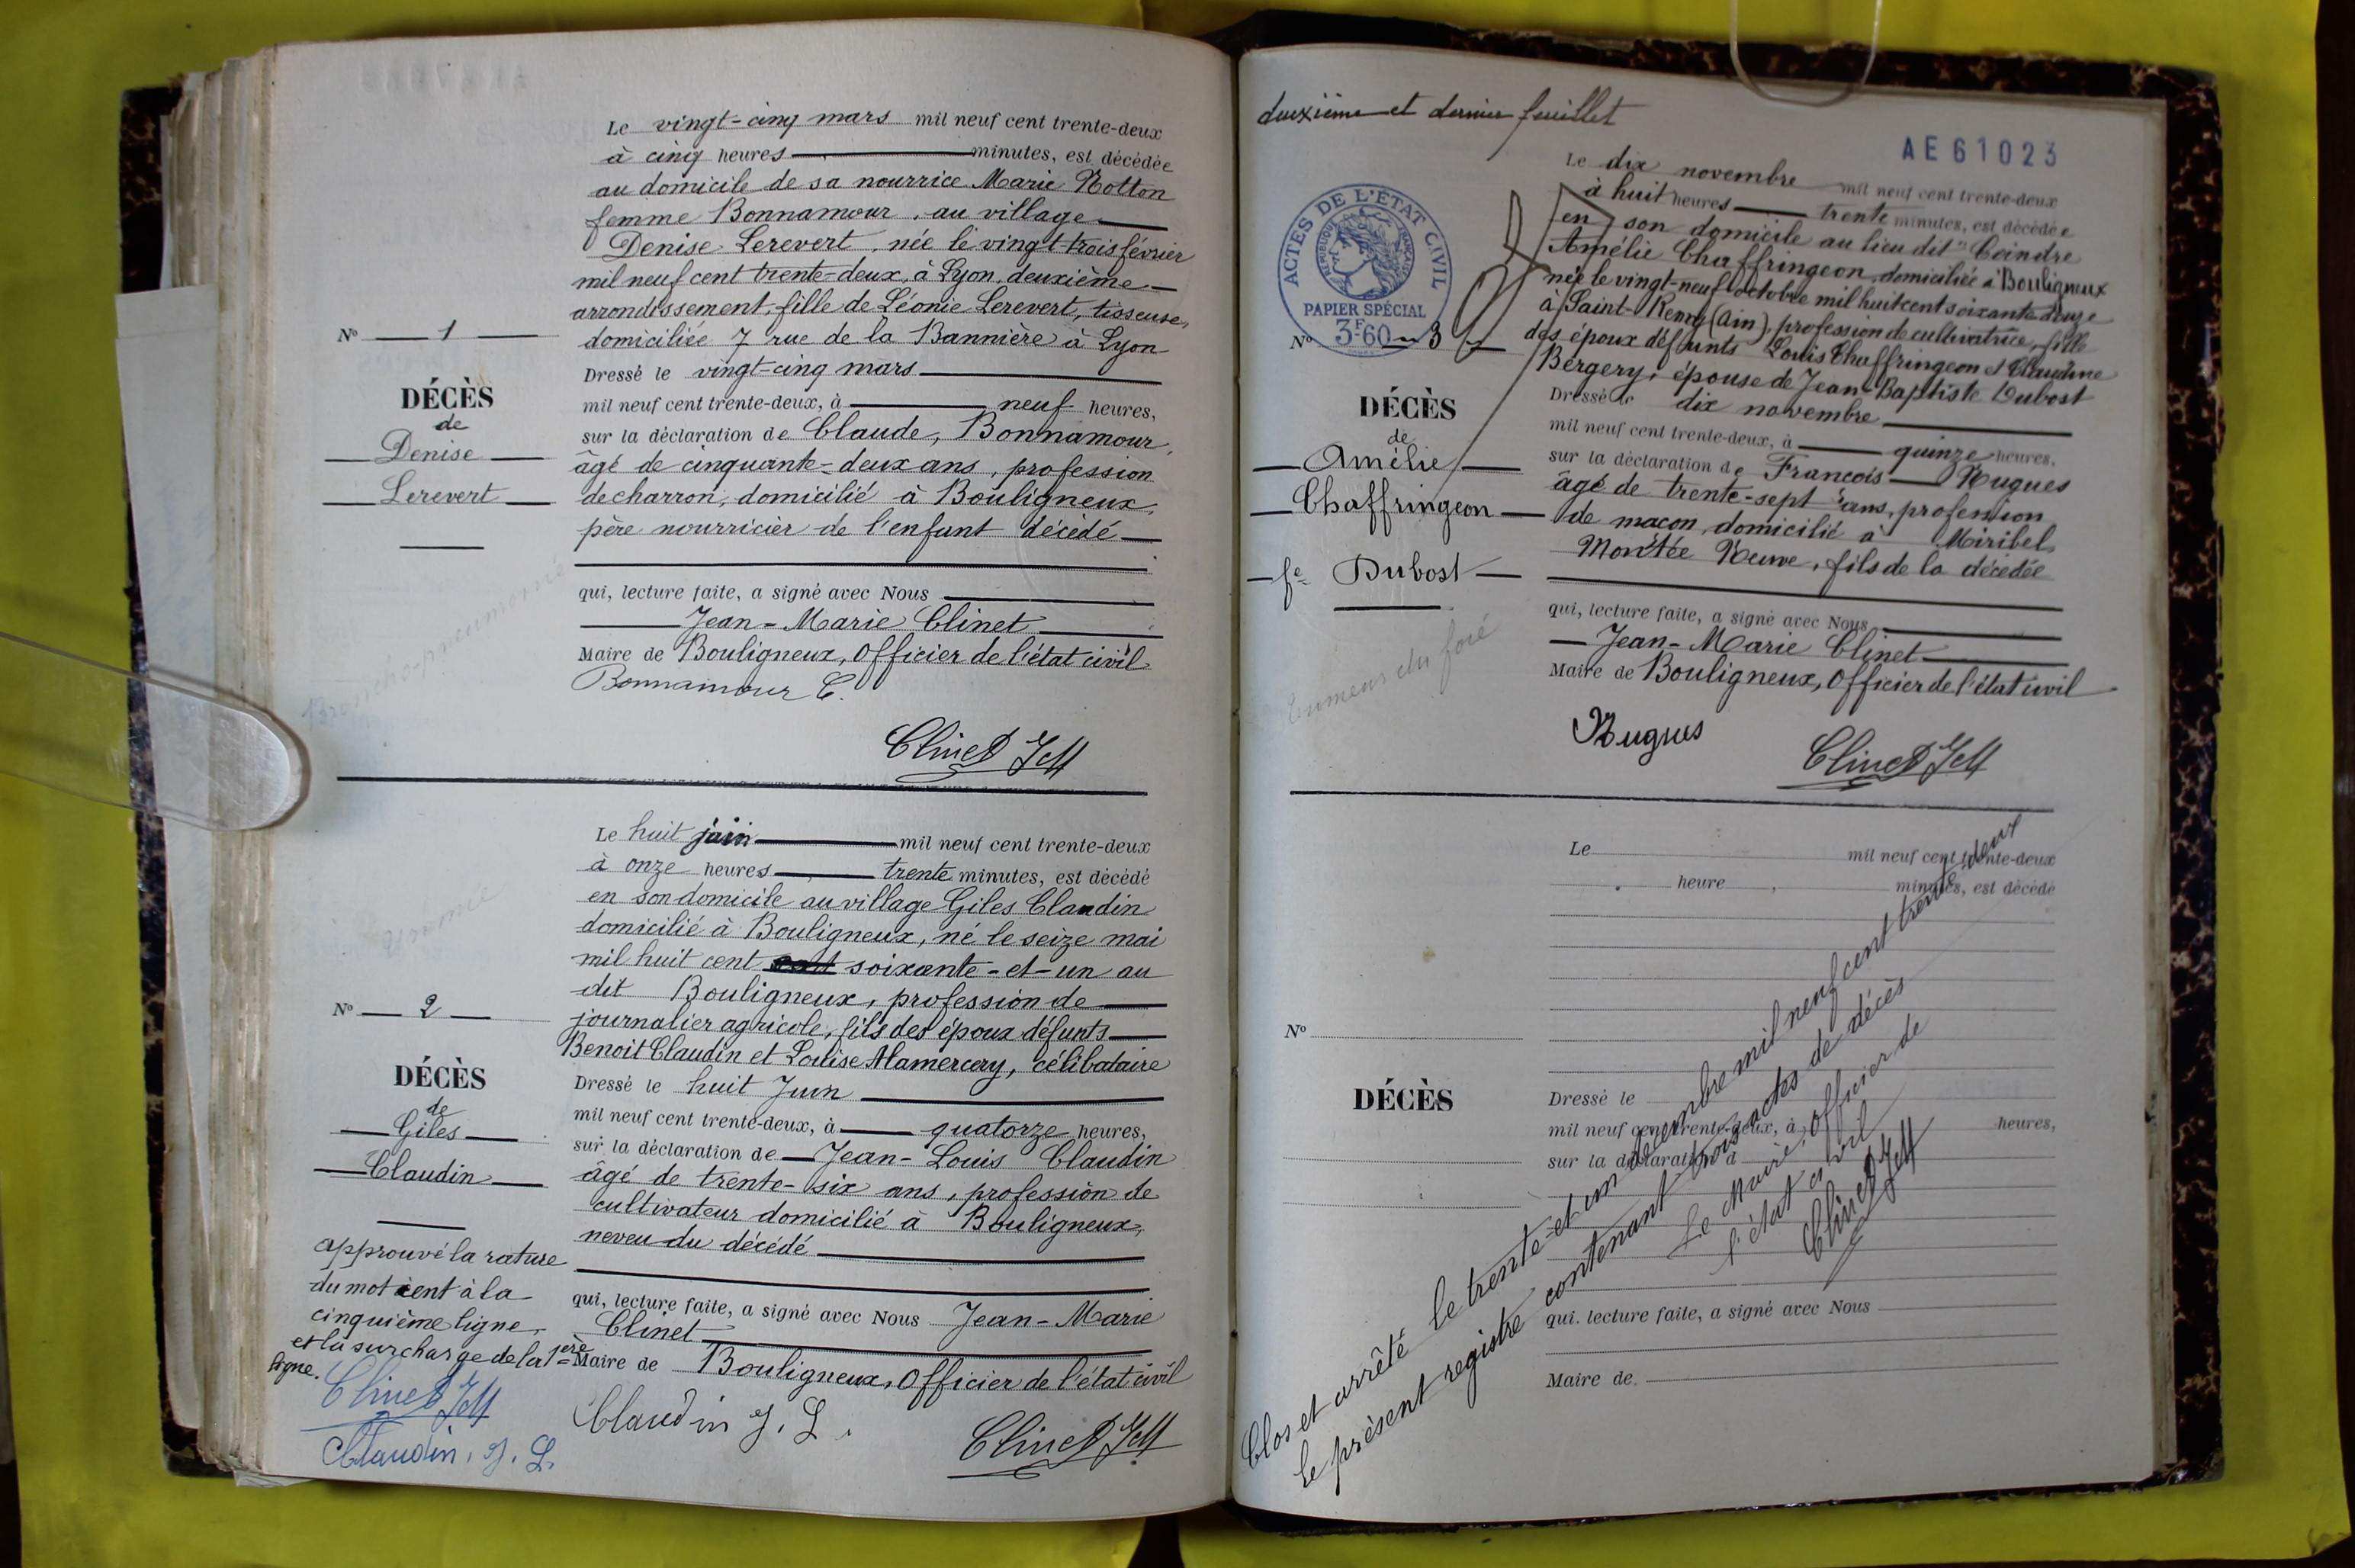 Le vingt-cinq mars mil neuf cent trente-deux
à cinq heures minutes, est décédée
au domicile de sa nourrice Marie Notton
femme Bonnamour, au village
Denise Lerevert, née le vingt-trois février
mil neuf cent trente-deux, à Lyon, deuxième
arrondissement, fille de Léonie Lerevert, tisseuse,
domiciliée 7 rue de la Bannière à Lyon
Dressé le vingt-cinq mars
mil neuf cent trente-deux, à neuf heures,
sur la déclaration de Claude, Bonnamour,
âgé de cinquante-deux ans, profession
de charron, domicilié à Bouligneux,
père nourricier de l'enfant décédé
qui, lecture faite, a signé avec Nous
Jean-Marie Clinet
Maire de Bouligneux, Officier de l'état civil
Bonnamour C.
Clinet JM
No 1
DÉCÈS
de
Denise
Lerevert
Broncho-pneumonie
Le huit juin mil neuf cent trente-deux
à onze heures trente minutes, est décédé
en son domicile au village Giles Claudin
domicilié à Bouligneux, né le seize mai
mil huit cent cent soixante-et-un au
dit Bouligneux, profession de
journalier agricole, fils des époux défunts
Benoit Claudin et Louise Mamercery, célibataire
Dressé le huit Juin
mil neuf cent trente-deux, à quatorze heures,
sur la déclaration de Jean-Louis Claudin
âgé de trente-six ans, profession de
cultivateur domicilié à Bouligneux,
neveu du décédé
qui, lecture faite, a signé avec Nous Jean-Marie
Clinet
Maire de Bouligneux, Officier de l'état civil
Claudin J. L.
Clinet JM
No 2
DÉCÈS
de
Giles
Claudin
Urémie
approuvé la rature
du mot cent à la
cinquième ligne,
et la surcharge de la 1ère
ligne.
Clinet JM
Claudin. J. L.
deuxième et dernier feuillet
AE61023
ACTES DE L'ÉTAT CIVIL
RÉPUBLIQUE FRANÇAISE
PAPIER SPÉCIAL
3F60
Le dix novembre mil neuf cent trente-deux
à huit heures trente minutes, est décédée
en son domicile au lieu dit Ceindre
Amélie Chaffringeon, domiciliée à Bouligneux
née le vingt-neuf octobre mil huit cent soixante-douze
à Saint-Remy (Ain), profession de cultivatrice, fille
des époux défunts Louis Chaffringeon et Claudine
Bergery, épouse de Jean-Baptiste Dubost
Dressé le dix novembre
mil neuf cent trente-deux, à quinze heures,
sur la déclaration de François Nugues
âgé de trente-sept ans, profession
de maçon, domicilié à Miribel
Montée Neuve, fils de la décédée
qui, lecture faite, a signé avec Nous
Jean-Marie Clinet
Maire de Bouligneux, Officier de l'état civil
Nugues
Clinet JM
No 3
DÉCÈS
de
Amélie
Chaffringeon
fe Dubost
Tumeur du foie
Le mil neuf cent trente-deux
heure minutes, est décédé
No
DÉCÈS
Dressé le
mil neuf cent trente-deux, à heures,
sur la déclaration d
qui, lecture faite, a signé avec Nous
Maire de
Clos et arrêté le trente-et-un décembre mil neuf cent trente-deux
le présent registre contenant trois actes de décès
Le Maire, Officier de
l'état civil
Clinet JM